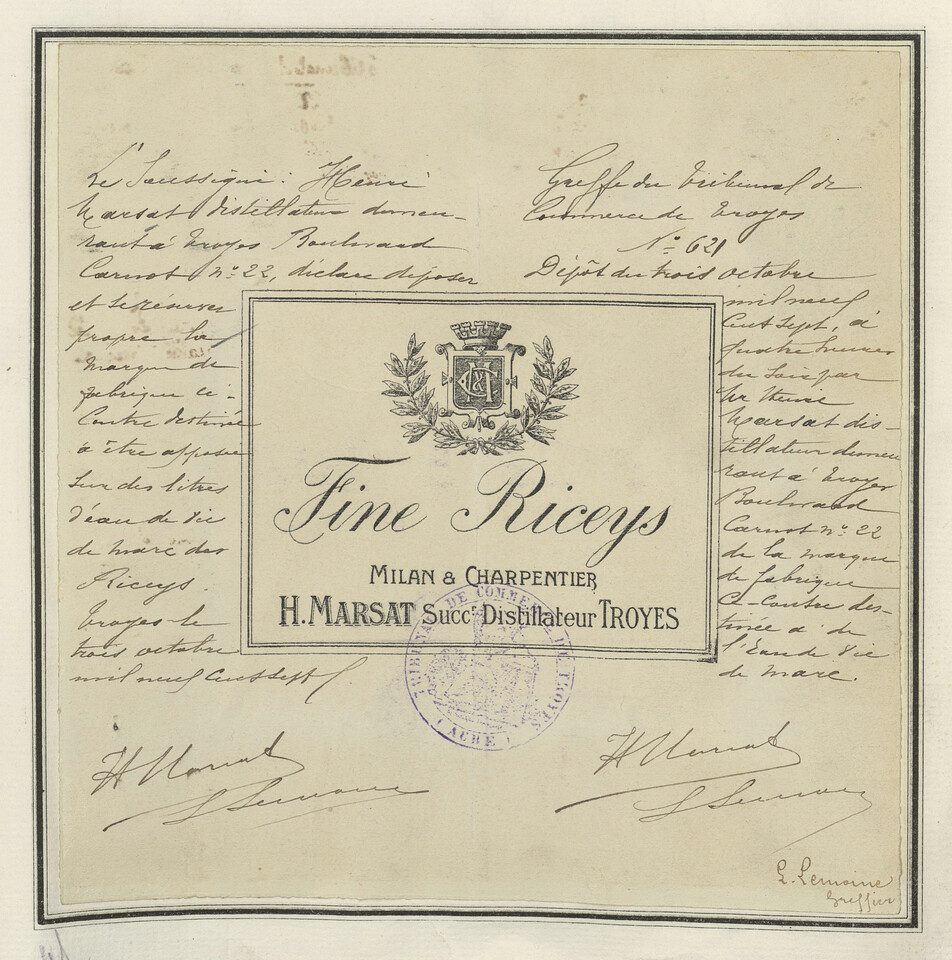 Le Soussigné : Henri
Marsat distillateur demeu-
rant à Troyes Boulevard
Carnot n° 22, déclare déposer
et se réserver
propre la
marque de
fabrique ci-
Contre destinée
à être apposée
sur des litres
d'eau de vie
de marc des
Riceys.
Troyes le
trois octobre
mil neuf cent sept
H Marsat
L Lemoine
Greffe du Tribunal de
Commerce de Troyes
N° 621
Dépôt du trois octobre
mil neuf
cent sept, à
quatre heures
du soir par
Mr Henri
Marsat dis-
tillateur demeu
rant à Troyes
Boulevard
Carnot n° 22
de la marque
de fabrique
Ci-Contre des-
tinée a de
l'Eau de Vie
de marc.
H Marsat
L Lemoine
L. Lemoine
Greffier
Fine Riceys
MILAN & CHARPENTIER
H. MARSAT Succr Distillateur TROYES
TRIBUNAL DE COMMERCE DE TROYES
( AUBE )